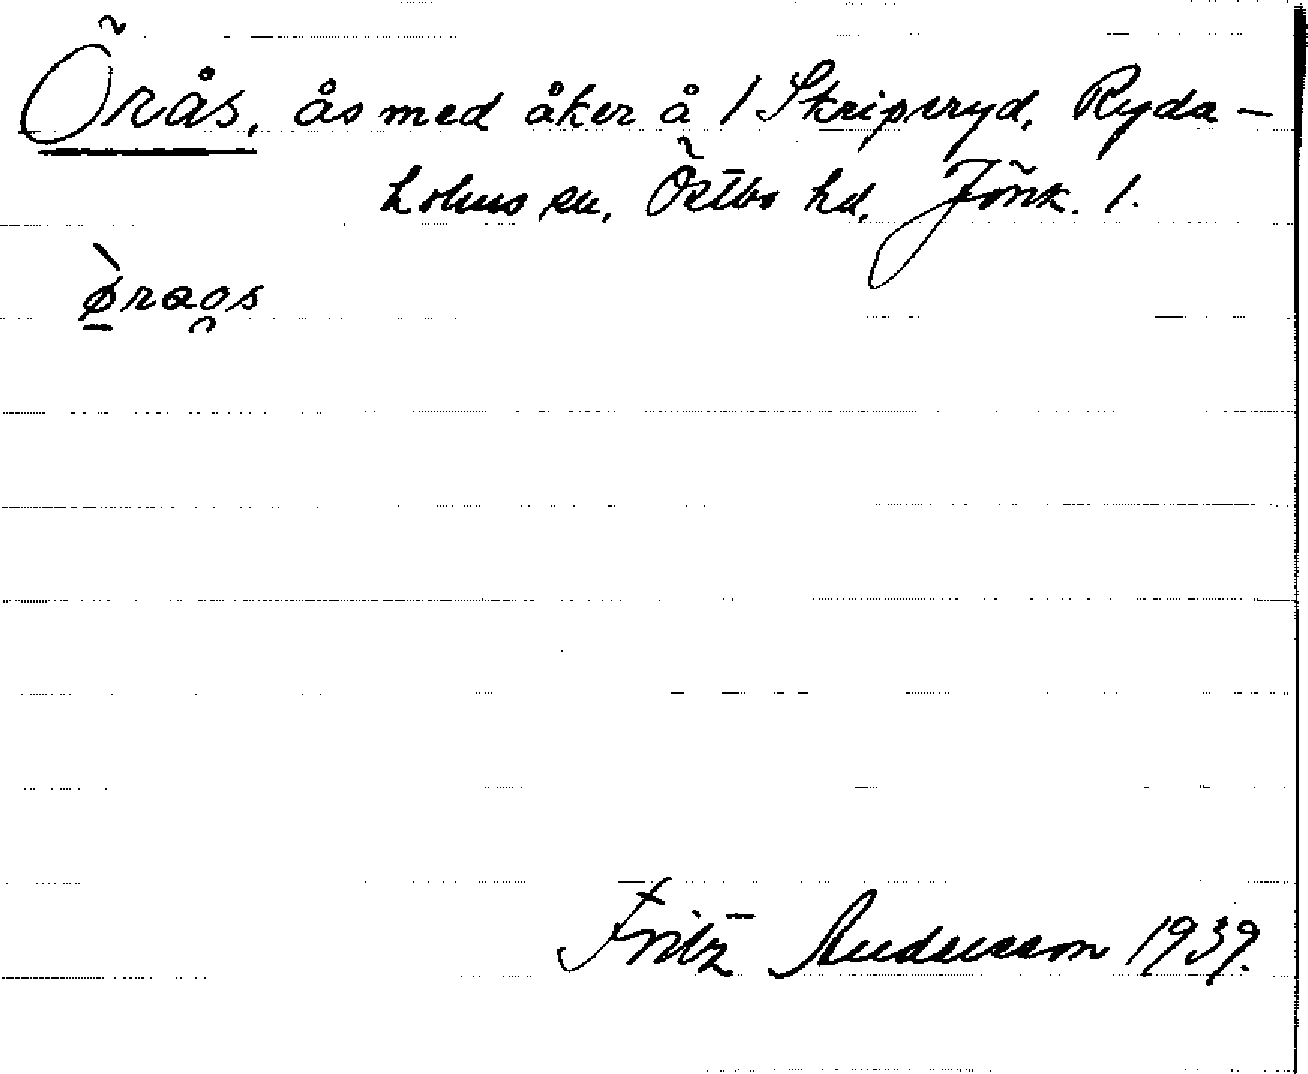 Örås, ås med åker å 1 Skripsryd, Ryda-
holms sn, Östbo hd, Jönk. l.
ø̀raos
Fritz Andersson 1939.